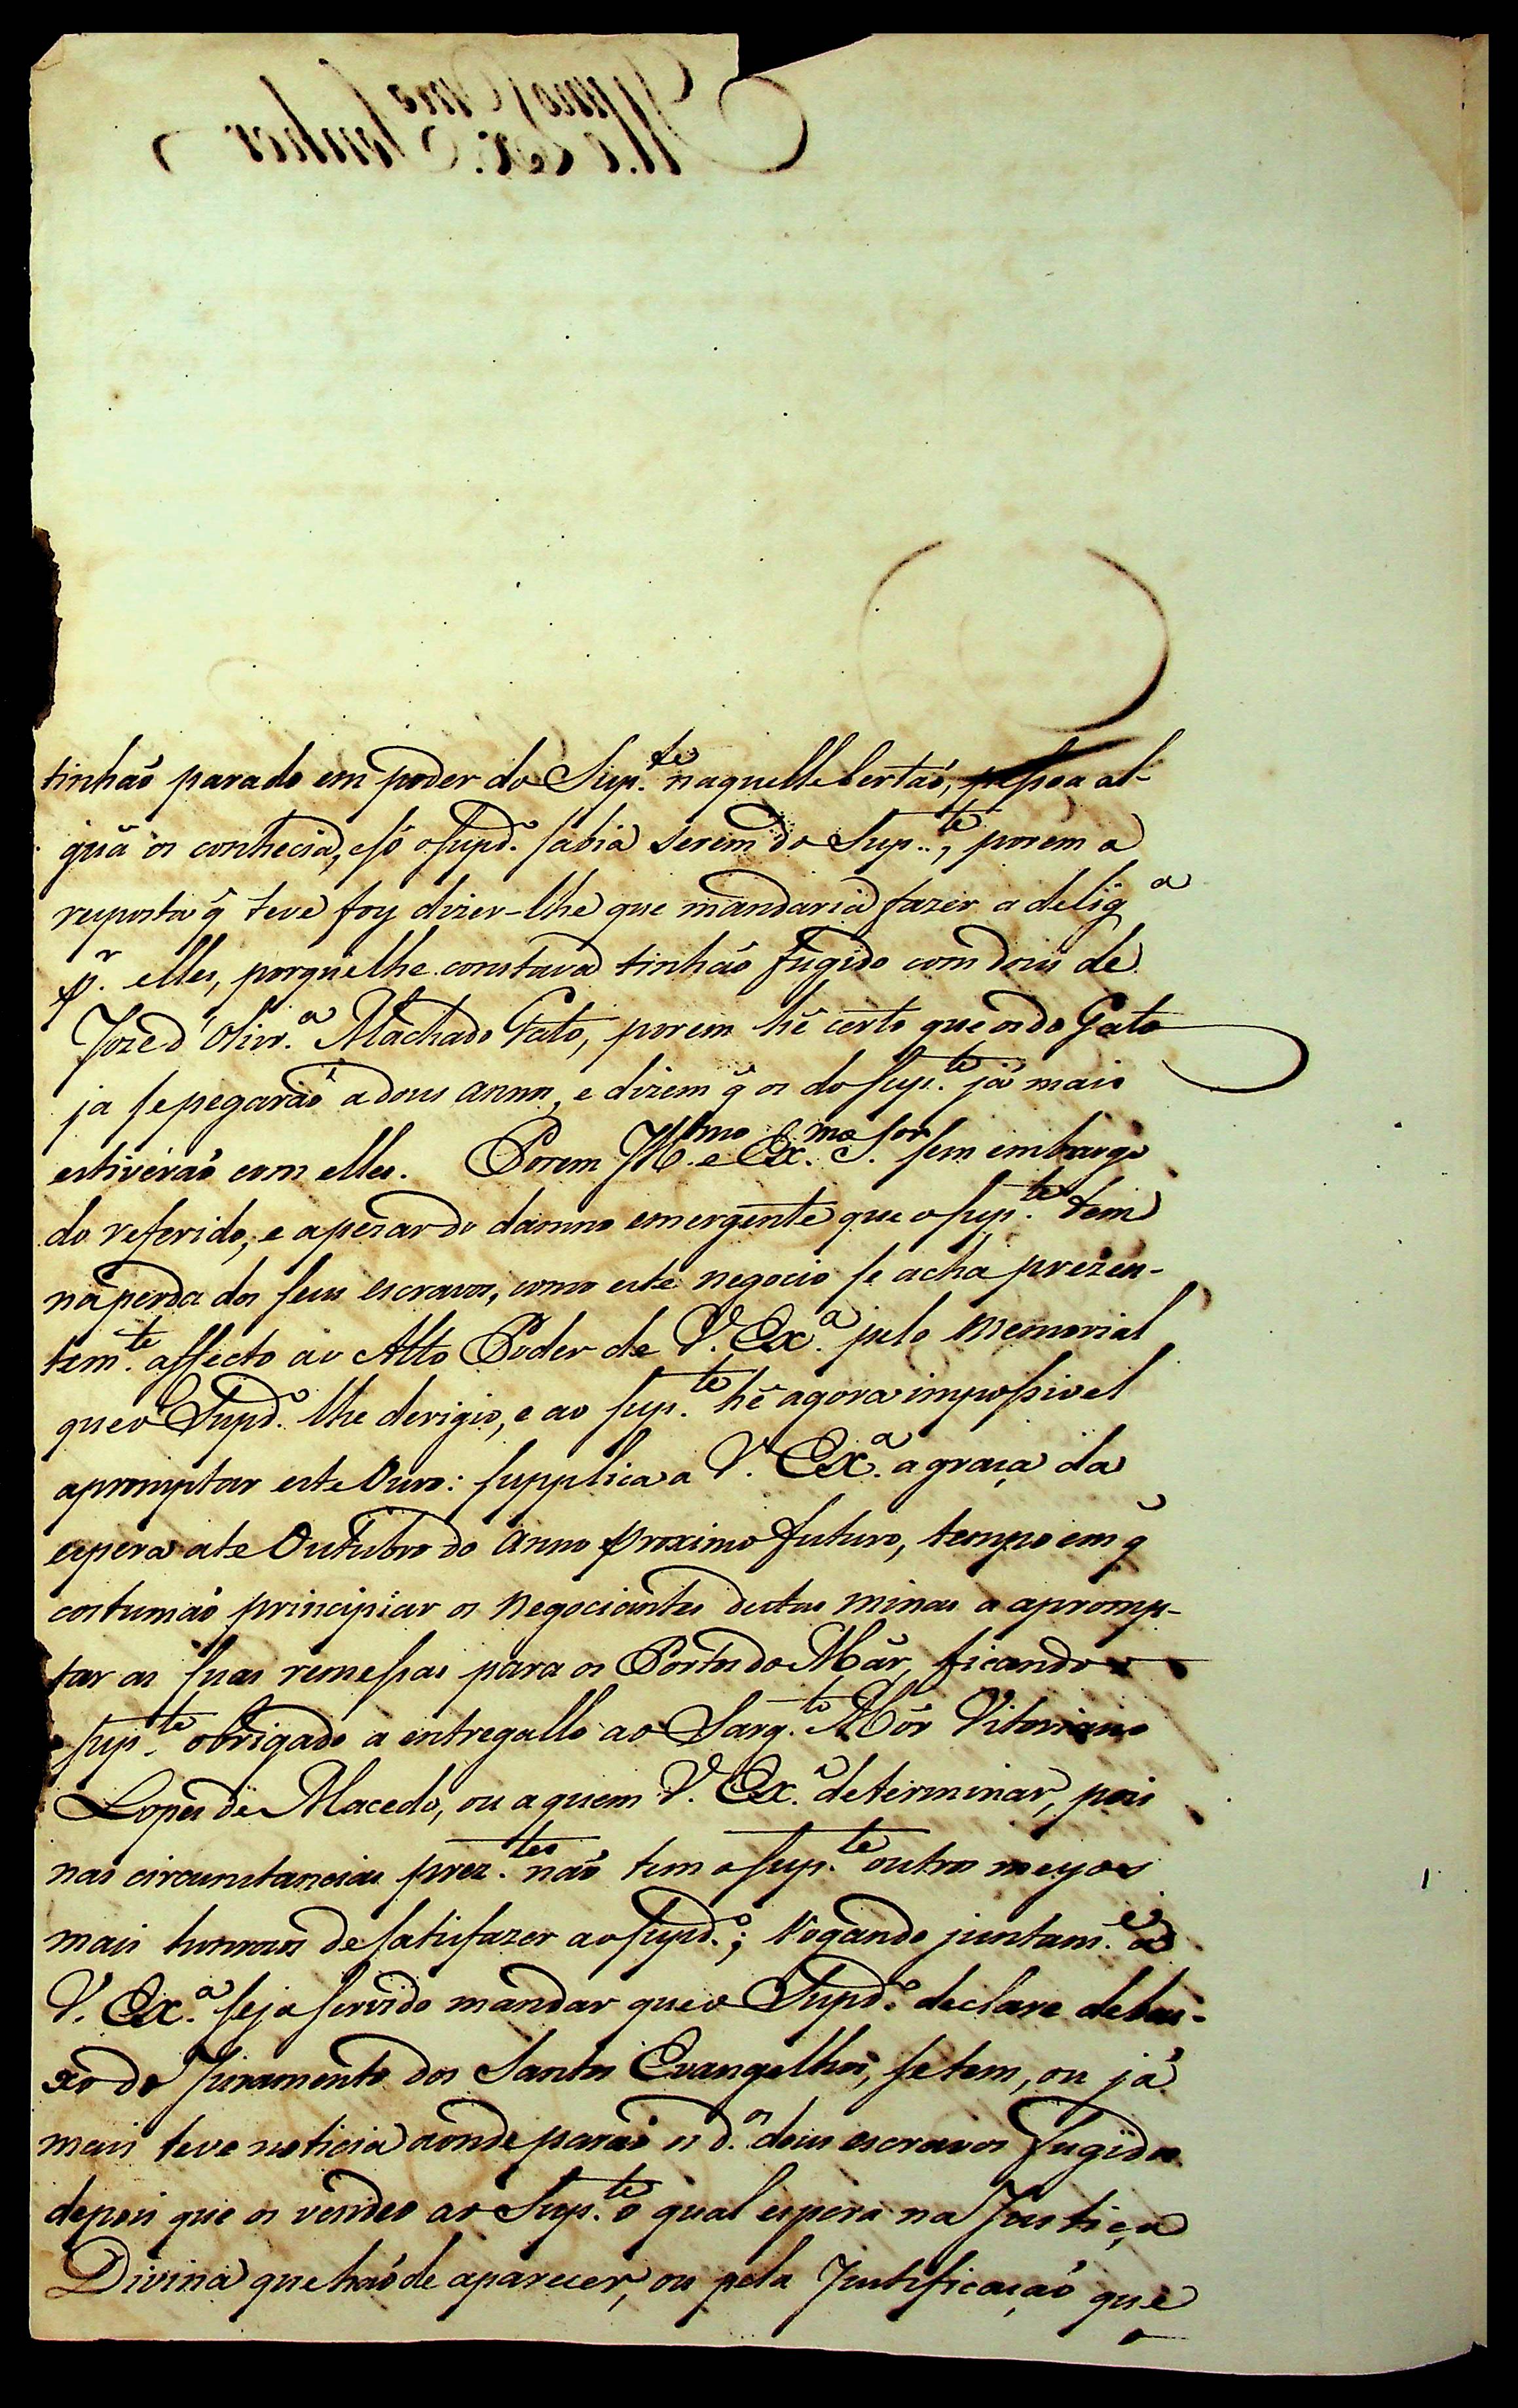 tinhaõ parado em poder do Sup.te naquelle Certaõ, pessoa al-
guã os conhecia, e só o Supd.o sabia serem do Sup.te, porem a
reposta q̃ teve foy dizer-lhe que mandaria fazer a delig.a
p.r elles, porque lhe constava tinhaõ fugido com dous de
Joze d' Olivr.a Machado Gato, porem hê certo que os do Gato
ja se pegaraõ a dous annos, e dizem q̃ os do Sup.te já mais
estiveraõ com elles. Porem Ill.mo e Ex.mo S.or sem embargo
do referido, e apezar do damno emergente que o Sup.te tem
na perda dos seus escravos, como este negocio se acha prezen-
tem.te affecto ao Alto Poder de V. Ex.a pelo Memorial
que o Supd.o lhe derigio, e ao Sup.te hê agora impossivel
apromptar este Ouro: supplica a V. Ex.a a graça da
espera ate Outubro do anno proximo futuro, tempo em q̃
costumaõ principiar os negociantes destas minas a apromp-
tar as suas remessas para os Portos do Mâr, ficando
o Sup.te obrigado a entregallo ao Sarg.to Môr Vitoriano
Lopes de Macedo, ou a quem V. Ex.a determinar, pois
nas circunstancias prez.tes naõ tem o Sup.te outros meyos
mais honrozos de satisfazer ao Supd.o; Rogando juntam.e a
V. Ex.a seja servido mandar que o Supd.o declare debai-
xo do Juramento dos Santos Evangelhos, se tem, ou já
mais teve noticia aonde paraõ os d.os dous escravos fugidos
depois que os vendeo ao Sup.te o qual espera na Justiça
Divina que haõ de aparecer, ou pela Justificaçaõ que